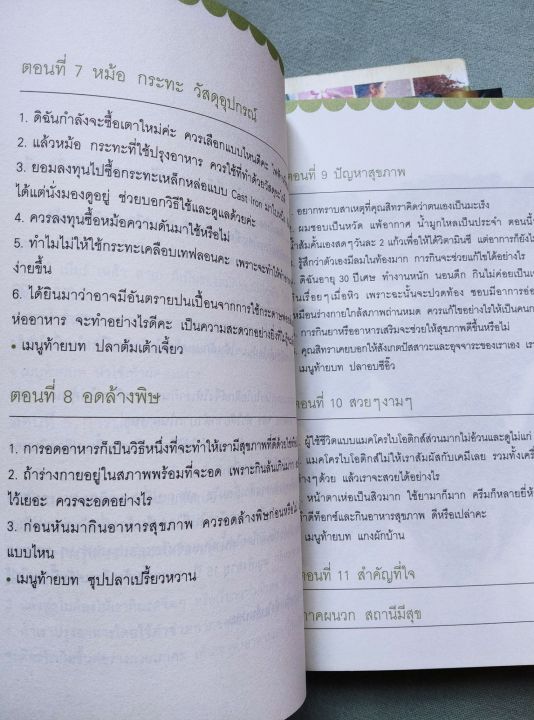 ตอนที่ 7 หม้อ กระทะ วัสดุอุปกรณ์
1. ดิฉันกำลังจะซื้อเตาใหม่ค่ะ ควรเลือกแบบไหนดีคะ
2. แล้วหม้อ กระทะที่ใช้ปรุงอาหาร ควรใช้ที่ทำด้วยวัสดุ
3. ยอมลงทุนไปซื้อกระทะเหล็กหล่อแบบ Cast Iron
ได้แต่นั่งมองดูอยู่ ช่วยบอกวิธีใช้และดูแลด้วยค่ะ
4. ควรลงทุนซื้อหม้อความดันมาใช้หรือไม่
5. ทำไมไม่ให้ใช้กระทะเคลือบเทฟลอนคะ เพราะจะทำให้
ง่ายขึ้น
6. ได้ยินมาว่าอาจมีอันตรายปนเปื้อนจากการใช้กระดาษ
ห่ออาหาร จะทำอย่างไรดีคะ เป็นความสะดวกอย่างยิ่ง
• เมนูท้ายบท ปลาต้มเต้าเจี้ยว
ตอนที่ 8 อดล้างพิษ
1. การอดอาหารก็เป็นวิธีหนึ่งที่จะทำให้เรามีสุขภาพที่ดีด้วย
2. ถ้าร่างกายอยู่ในสภาพพร้อมที่จะอด เพราะกินล้นเกินมา
ไว้เยอะ ควรจะอดอย่างไร
3. ก่อนหันมากินอาหารสุขภาพ ควรอดล้างพิษก่อนหรือไม่
แบบไหน
• เมนูท้ายบท ซุปปลาเปรี้ยวหวาน
ตอนที่ 9 ปัญหาสุขภาพ
อยากทราบสาเหตุที่คุณสิทราคิดว่าตนเองเป็นมะเร็ง
ผมชอบเป็นหวัด แพ้อากาศ น้ำมูกไหลเป็นประจำ ตอนนี้
น้ำส้มคั้นเองสดๆ วันละ 2 แก้วเพื่อให้ได้วิตามินซี แต่อาการก็ยังไม่
รู้สึกว่าตัวเองมีลมในท้องมาก การกินจะช่วยแก้ไขได้อย่างไร
ดิฉันอายุ 30 ปีเศษ ทำงานหนัก นอนดึก กินไม่ค่อยเป็น
กินเรื่อยๆเมื่อหิว เพราะฉะนั้นจะปวดท้อง ชอบมีอาการ
เหมือนร่างกายใกล้สภาพถ่านหมด ควรแก้ไขอย่างไรให้เป็นคน
การกินยาหรืออาหารเสริมจะช่วยให้สุขภาพดีขึ้นหรือไม่
คุณสิทราเคยบอกให้สังเกตปัสสาวะและอุจจาระของเราเอง
เมนูท้ายบท ปลาอบซีอิ๊ว
ตอนที่ 10 สวยๆงามๆ
ผู้ใช้ชีวิตแบบแมคโครไบโอติกส์ส่วนมากไม่อ้วนและดูไม่แก่
แมคโครไบโอติกส์ไม่ให้เราสัมผัสกับเคมีเลย รวมทั้งเครื่อง
ต่างๆด้วย แล้วเราจะสวยได้อย่างไร
หน้าตาเห่อเป็นสิวมาก ใช้ยามาก็มาก ครีมก็หลายยี่ห้อ
ดีท็อกซ์และกินอาหารสุขภาพ ดีหรือเปล่าคะ
เมนูท้ายบท แกงผักบ้าน
ตอนที่ 11 สำคัญที่ใจ
ภาคผนวก สถานีมีสุข